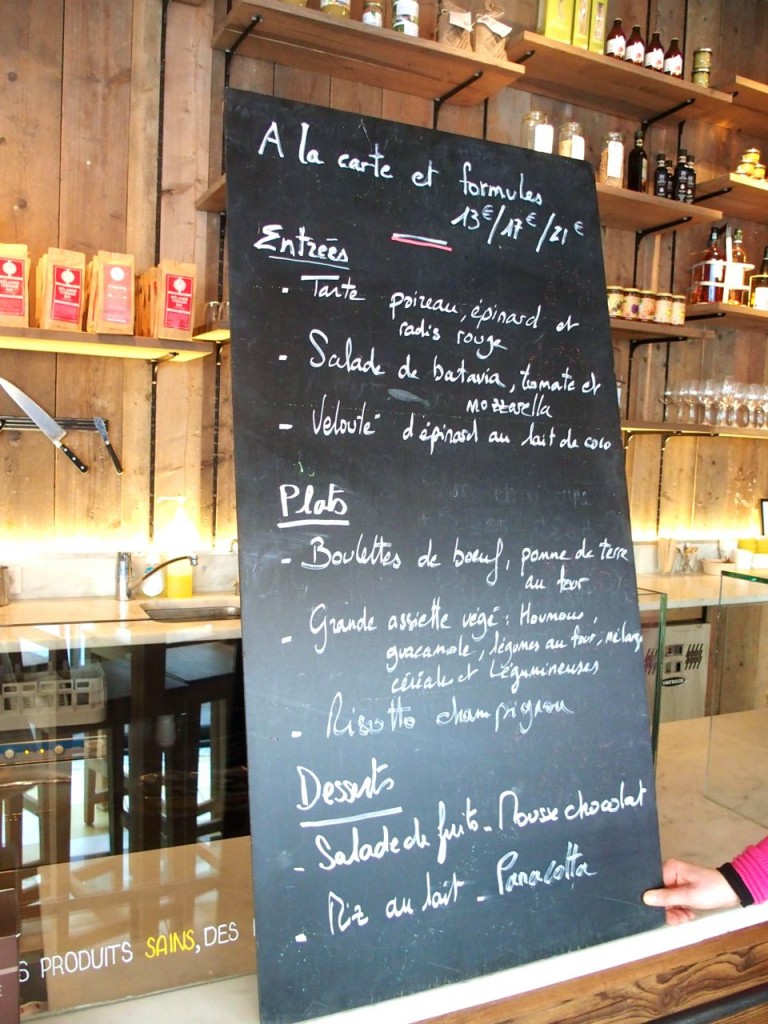 A la carte et formules
13€/17€/21€
Entrées
- Tarte poireau, épinard et
radis rouge
- Salade de batavia, tomate et
mozzarella
- Velouté d'épinard au lait de coco
Plats
- Boulettes de boeuf, pomme de terre
au four
- Grande assiette végé : Houmous,
guacamole, légumes au four, mélange
céréale et Légumineuses
- Risotto champignon
Desserts
- Salade de fruits - Mousse chocolat
- Riz au lait - Panacotta
S PRODUITS SAINS, DES